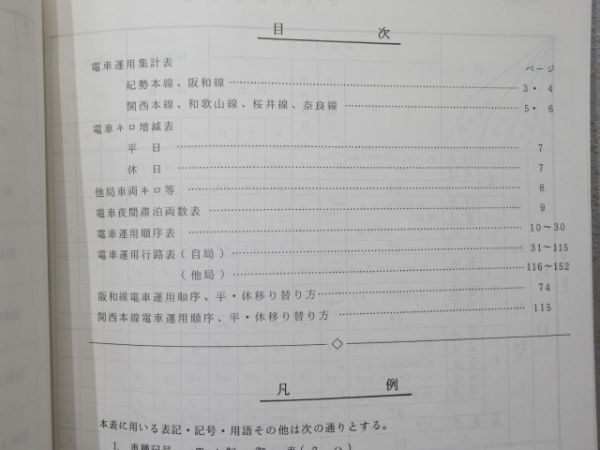 目 次
ページ
電車運用集計表
紀勢本線、阪和線 3・4
関西本線、和歌山線、桜井線、奈良線 5・6
電車キロ増減表
平 日 7
休 日 7
他局車両キロ等 8
電車夜間滞泊両数表 9
電車運用順序表 10~30
電車運用行路表(自局) 31~115
(他局) 116~152
阪和線電車運用順序、平・休移り替り方 74
関西本線電車運用順序、平・休移り替り方 115
凡 例
本表に用いる表記・記号・用語その他は次の通りとする。
1. 車種記号